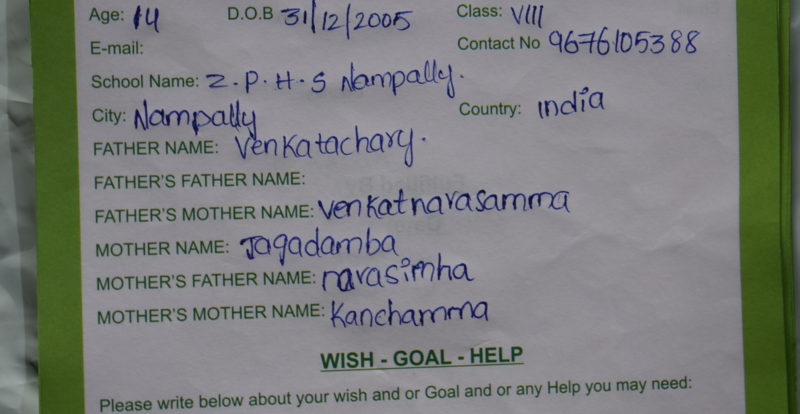 Age: 14 D.O.B 31/12/2005 Class: VIII
E-mail: Contact No 9676105388
School Name: Z.P.H.S Nampally.
City: Nampally Country: india
FATHER NAME: Venkatachary.
FATHER'S FATHER NAME:
FATHER'S MOTHER NAME: Venkatnarasamma
MOTHER NAME: Jagadamba
MOTHER'S FATHER NAME: narasimha
MOTHER'S MOTHER NAME: Kanchamma
WISH - GOAL - HELP
Please write below about your wish and or Goal and or any Help you may need: